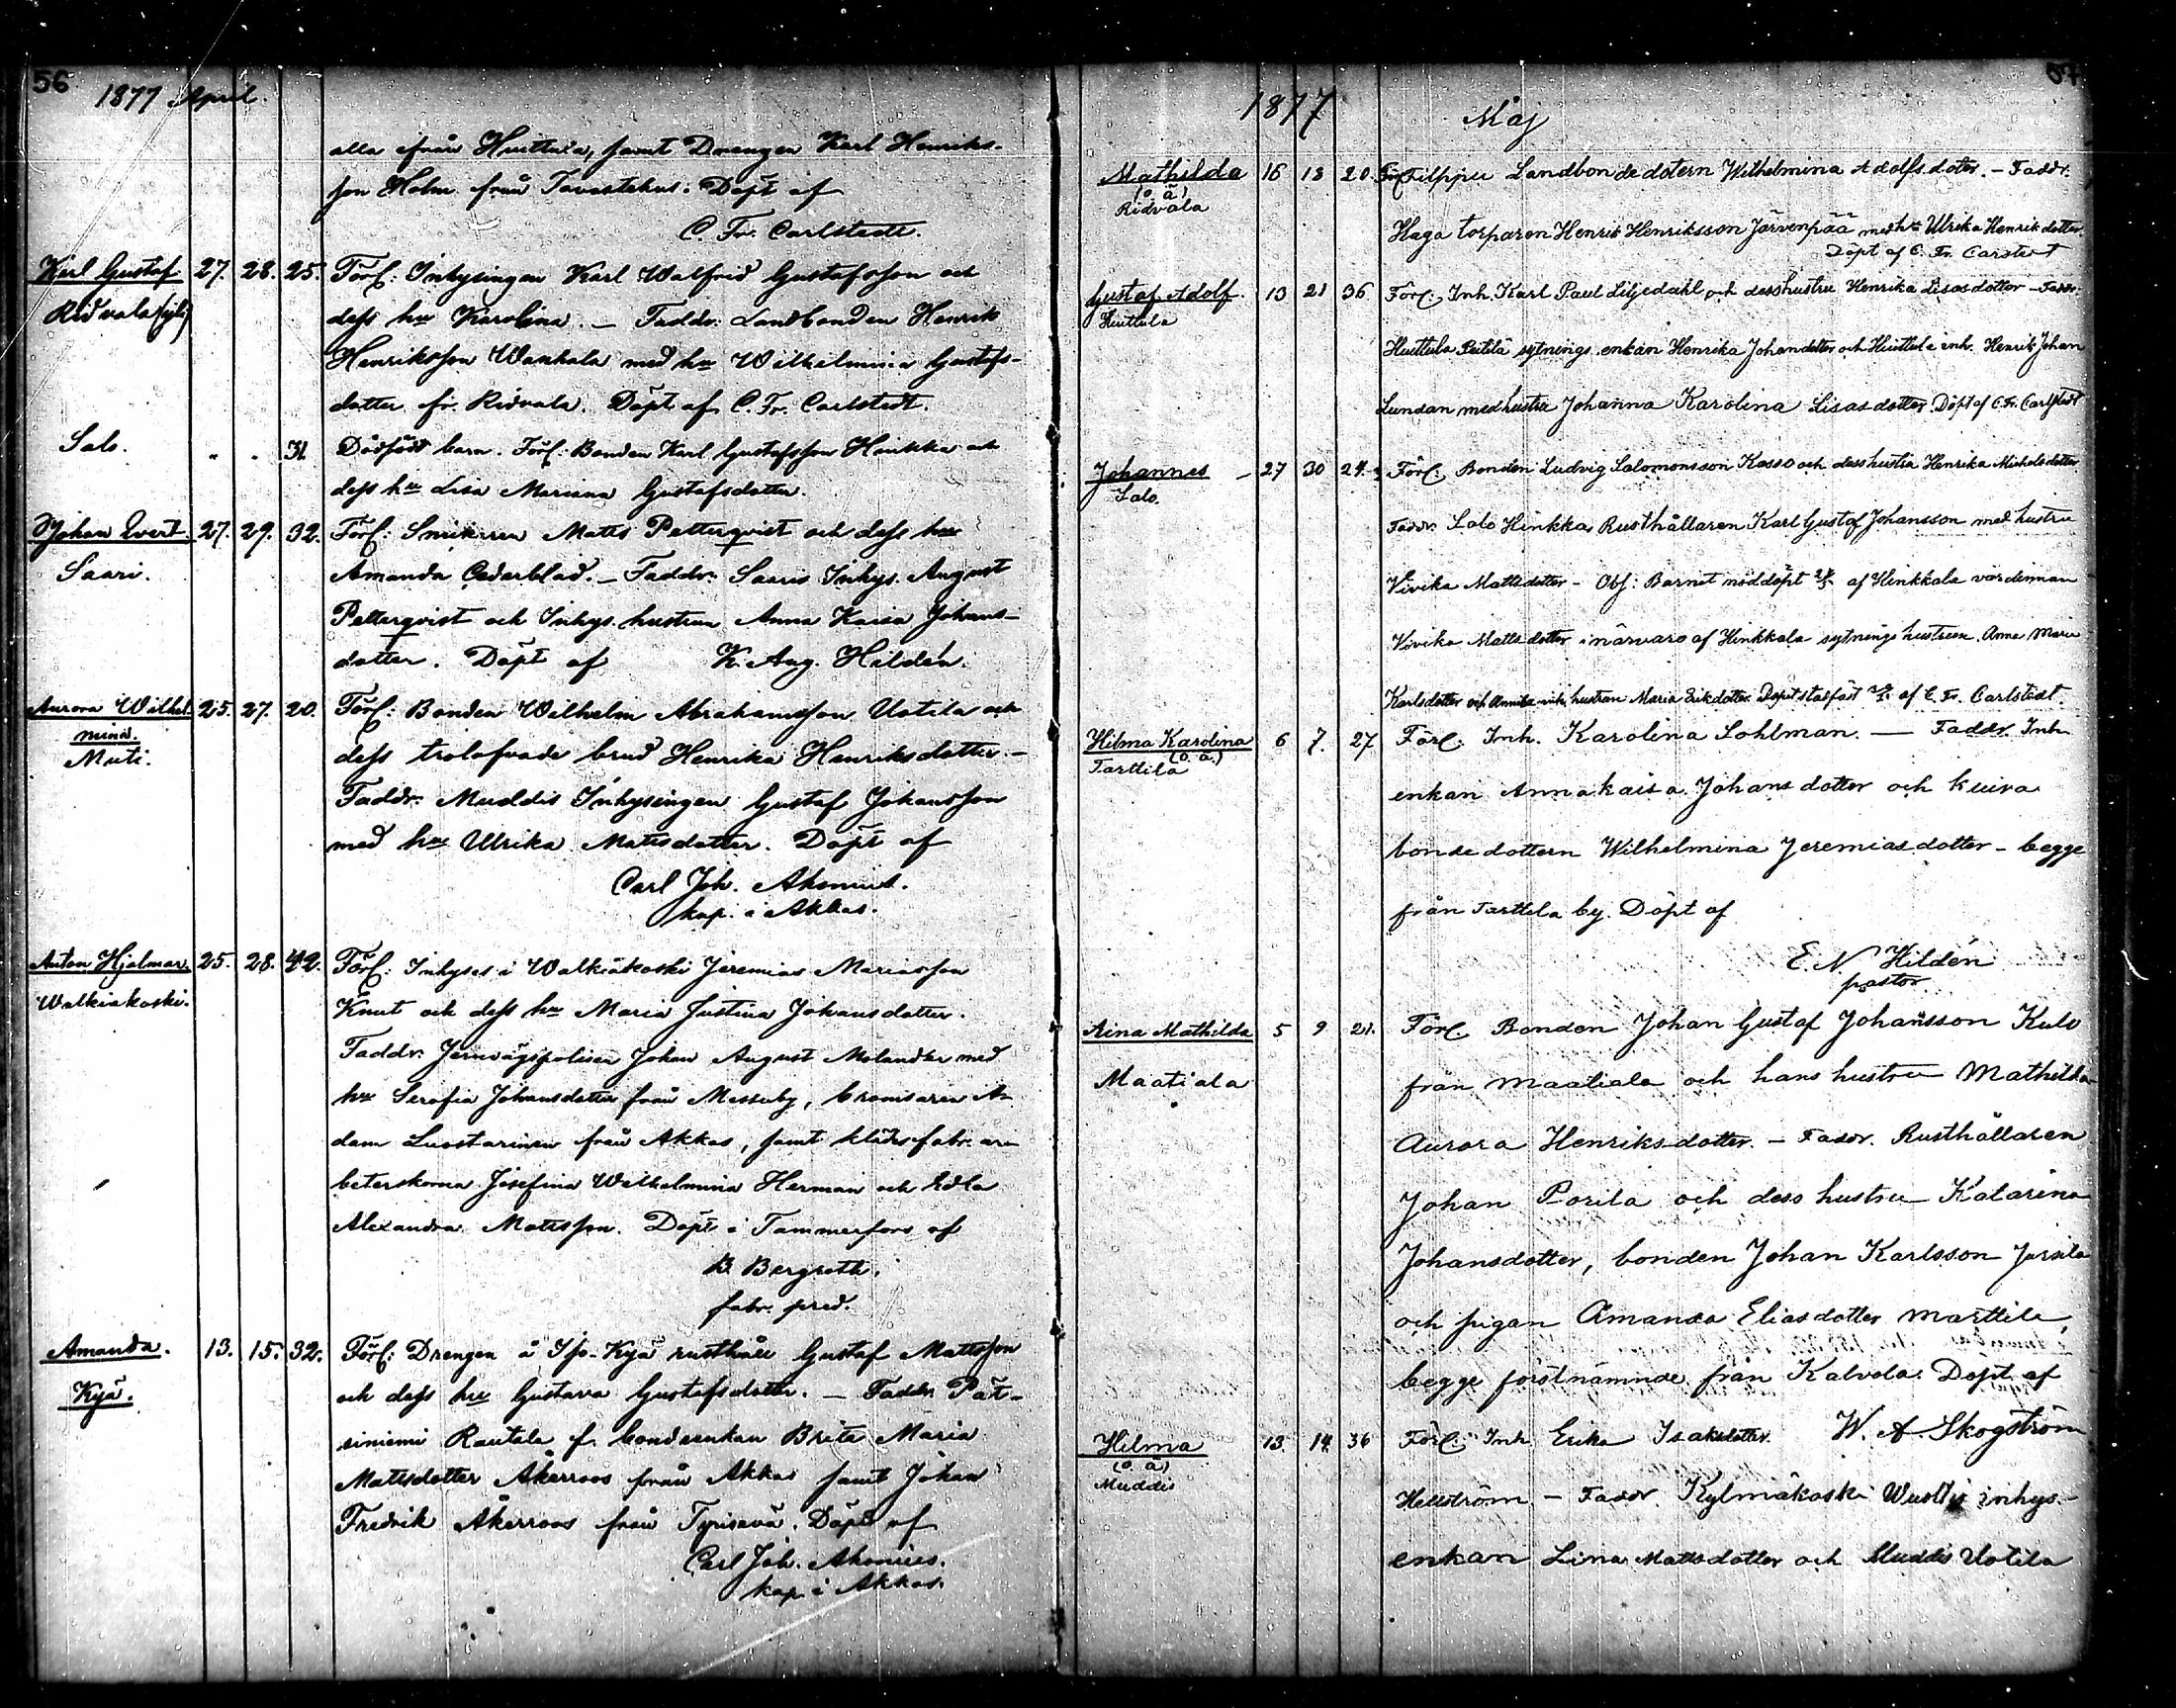 56
1877 April.
alla ifrån Huittula, samt Drengen Karl Henriks-
son Holm från Tavastehus. Döpt af
C. Fr. Carlstedt.
Karl Gustaf 27. 28. 25. Förl: Inhysingen Karl Walfrid Gustafsson och
Ridvala
dess hu Karolina. – Faddr: Landbonden Henrik
Henriksson Wanhala med hu Wilhelmina Gustafs-
dotter fr. Ridvala. Döpt af C. Fr. Carlstedt.
Salo. " " 31. Dödfödt barn. Förl: Bonden Karl Gustafsson Hinkka och
dess hu Lisa Mariana Gustafsdotter.
Johan Evert. 27. 29. 32. Förl: Snickaren Matts Petterqvist och dess hu
Saari. Amanda Cederblad. – Faddr: Saaris Inhys. August
Petterqvist och Inhys. hustrun Anna Kaisa Johans-
dotter. Döpt af K. Aug. Hildén.
Aurora Wilhel- 25. 27. 20. Förl: Bonden Wilhelm Abrahamsson Uotila och
mina.
Muti. dess trolofvade brud Henrika Henriksdotter. –
Faddr: Muddis Inhysingen Gustaf Johansson
med hu Ulrika Mattsdotter. Döpt af
Carl Joh. Akonius.
kap. i Akkas.
Anton Hjalmar. 25. 28. 42. Förl: Inhyses i Walkiakoski Jeremias Mariasson
Walkiakoski. Knut och dess hu Maria Justina Johansdotter.
Faddr: Jernvägspolisen Johan August Molander med
hu Serafia Johansdotter från Messuby, bromsaren A-
dam Luostarinen från Akkas, samt klädesfabr. ar-
beterskorna Josefina Wilhelmina Herman och Edla
Alexandra Mattsson. Döpt i Tammerfors af
B. Bergroth.
fabr. pred.
Amanda. 13. 15. 32. Förl: Drengen å Kyä rusthåll Gustaf Mattsson
Kyä. och dess hu Gustava Gustafsdotter. – Faddr:
Rautala f. bondeenkan Brita Maria
Mattsdotter Åkerroos från Akkas samt Johan
Fredrik Åkerroos från Tyrisevä. Döpt af
Carl Joh. Akonius.
kap. i Akkas.
57
1877 Maj
Mathilda 16 18 20. Förl. Filppu Landbondedotern Wilhelmina Adolfs doter. – Faddr.
(o ä)
Ridvala
Haga torparen Henrik Henriksson Järvenpää med hu Ulrika Henrik dotter.
Döpt af C. Fr. Carstedt
Gustaf Adolf. 13 21 36 Förl. Inh. Karl Paul Liljedahl och dess hustru Henrika Lisasdotter – Faddr.
Huittula
Huittula sytnings enkan Henrika Johandotter och Huittula inh. Henrik Johan
Lundan med hustru Johanna Karolina Lisasdotter. Döpt af C. Fr. Carlstedt
Johannes – 27 30 24. Förl. Bonden Ludvig Salomonsson Kasso och dess hustru Henrika Michelsdotter
Salo.
Faddr. Salo Hinkka Rusthållaren Karl Gustaf Johansson med hustru
Vivika Mattsdotter – Obs: Barnet nöddöpt af Hinkkala värdinnan
Vivika Mattsdotter i närvaro af Hinkkala sytnings hustrun Anna Maria
Karlsdotter och inh. hustrun Maria Erikdotter. Dopet stadfäst af C. Fr. Carlstedt.
Hilma Karolina 6 7. 27 Förl. Inh. Karolina Sohlman. – Faddr. Inh
(o. ä.)
Tarttila
enkan Annakaisa Johans dotter och Kuira
bondedottern Wilhelmina Jeremiasdotter – begge
från Tarttila by. Döpt af
E. N Hildén
pastor.
Aina Mathilda 5 9 21. Förl. Bonden Johan Gustaf Johansson Kulo
Maatiala från Maatiala och hans hustru Mathilda
Aurora Henriksdotter. – Faddr. Rusthållaren
Johan Porila och dess hustru Katarina
Johansdotter, bonden Johan Karlsson
och pigan Amanda Eliasdotter Marttila,
begge förstnämnde från Kalvola. Döpt af
W. A. Skogström
Hilma 13 14 36 Förl. Inh. Erika Isaksdotter
(o. ä)
Muddis
Hellström – Faddr. Kylmäkoski inhys.-
enkan Lina Mattsdotter och Muddis Uotila